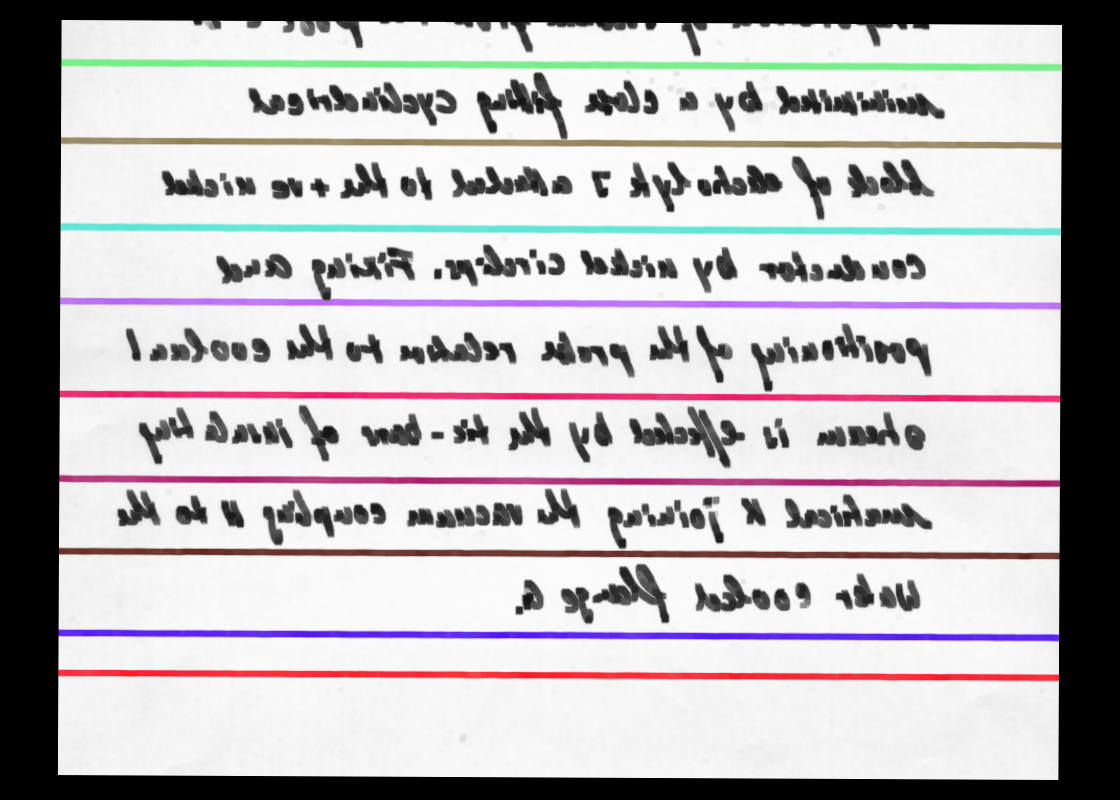 minimised by a close fitting cylindrical
block of electrolyte 7 attached to the +ve nickel
conductor by nickel circlips. Fixing and
positioning of the probe relative to the coolant
stream is effected by the tie-bars of insulating
material K joining the vacuum coupling H to the
water cooled flange G.